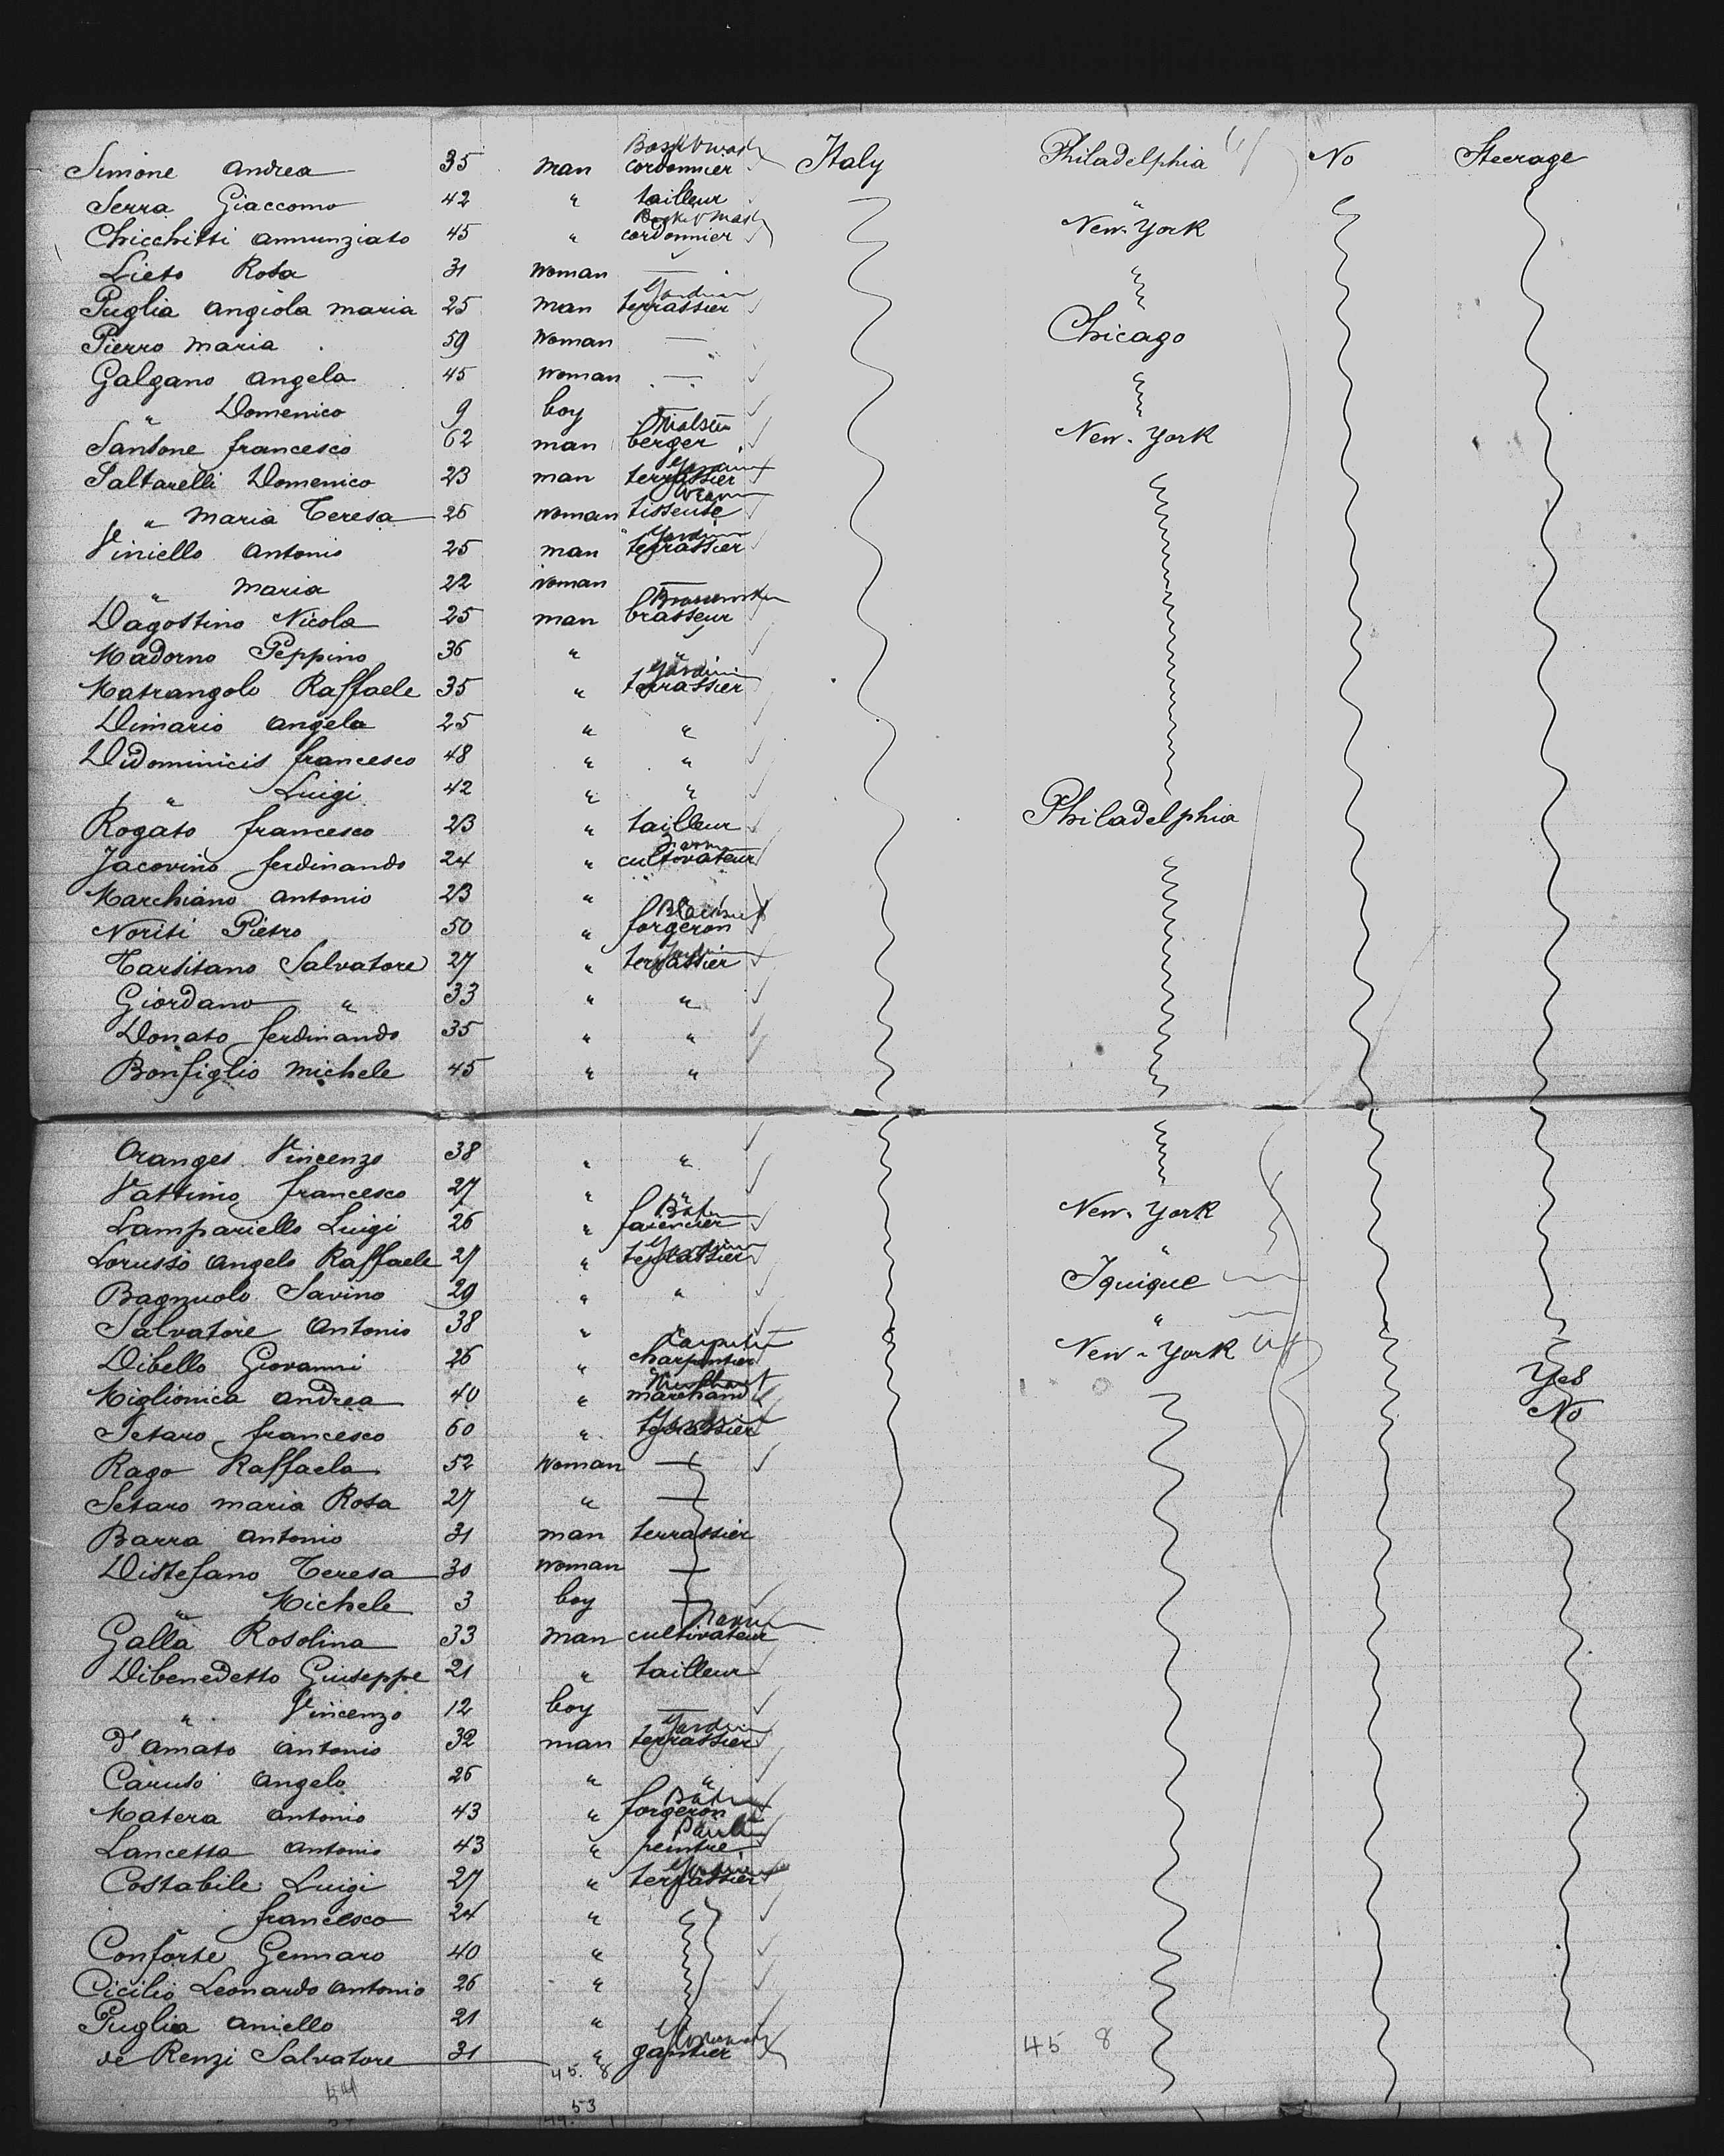 Simone Andrea 35 man cordonnier Italy Philadelphia No Steerage
Serra Giaccomo 42 " tailleur "
Chicchitti Annunziato 45 " cordonnier New-York
Lieto Rosa 31 Woman —
Puglia Angiola Maria 25 man terrassier
Pierro Maria 59 Woman — Chicago
Galgano Angela 45 Woman —
" Domenico 9 boy —
Santone francesco 62 man berger New-York
Saltarelli Domenico 23 man terrassier
" Maria Teresa 26 Woman tisseuse
Viniello Antonio 25 man terrassier
" Maria 22 Woman —
Dagostino Nicola 25 man brasseur
Madorno Peppino 36 " "
Matrangolo Raffaele 35 " terrassier
Dimario Angela 25 " "
Didominicis francesco 48 " "
" Luigi 42 " "
Rogato francesco 23 " tailleur Philadelphia
Jacovino ferdinando 24 " cultivateur
Marchiano Antonio 23 "
Noriti Pietro 50 " forgeron
Tarsitano Salvatore 27 " terrassier
Giordano " 33 " "
Donato ferdinando 35 " "
Bonfiglio Michele 45 " "
Oranges Vincenzo 38 " "
Vattimo francesco 27 " "
Lampariello Luigi 26 " faiencier New-York
Lorusso Angelo Raffaele 27 " terrassier "
Bagnuolo Savino 29 " " Iquique
Salvatore Antonio 38 " " "
Dibello Giovanni 26 " charpentier New-York
Miglionica Andrea 40 " marchand Yes
Setaro francesco 60 " terrassier No
Rago Raffaela 52 Woman —
Setaro Maria Rosa 27 " —
Barra Antonio 31 man terrassier
Distefano Teresa 30 Woman —
" Michele 3 boy —
Galla Rosolina 33 man cultivateur
Dibenedetto Giuseppe 21 " tailleur
" Vincenzo 12 boy —
d'Amato Antonio 32 man terrassier
Caruso Angelo 26 " "
Matera Antonio 43 " forgeron
Lancetta Antonio 43 " peintre
Costabile Luigi 27 " terrassier
" francesco 24 "
Conforte Gennaro 40 "
Cicilio Leonardo Antonio 26 "
Puglia Aniello 21 "
de Renzi Salvatore 31 " gantier
45 8 45 8
54
53